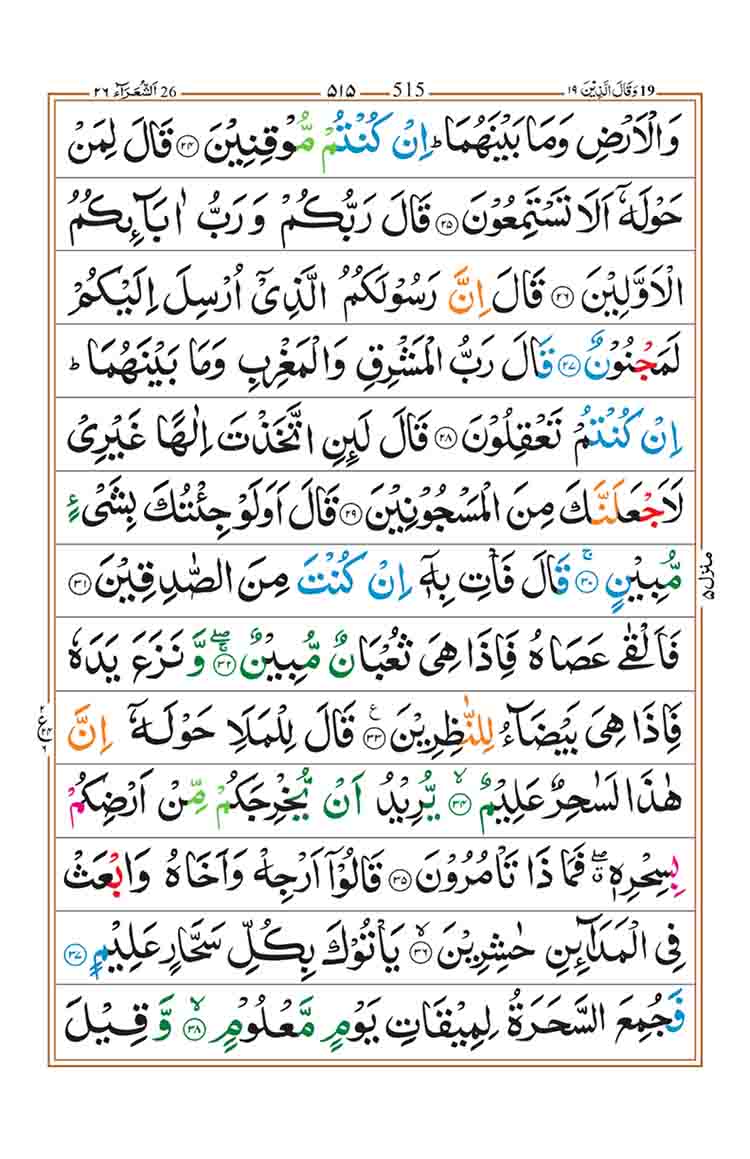 19 وَقَالَ الَّذِيْنَ ١٩ 515 ۵۱۵ 26 اَلشُّعَرَآء ٢٦
وَالْاَرْضِ وَمَا بَيْنَهُمَا ؕ اِنْ كُنْتُمْ مُّوْقِنِيْنَ ۝۲۴ قَالَ لِمَنْ
حَوْلَهٗۤ اَلَا تَسْتَمِعُوْنَ ۝۲۵ قَالَ رَبُّكُمْ وَ رَبُّ اٰبَآئِكُمُ
الْاَوَّلِيْنَ ۝۲۶ قَالَ اِنَّ رَسُوْلَكُمُ الَّذِيْۤ اُرْسِلَ اِلَيْكُمْ
لَمَجْنُوْنٌ ۝۲۷ قَالَ رَبُّ الْمَشْرِقِ وَالْمَغْرِبِ وَمَا بَيْنَهُمَا ؕ
اِنْ كُنْتُمْ تَعْقِلُوْنَ ۝۲۸ قَالَ لَئِنِ اتَّخَذْتَ اِلٰهًا غَيْرِيْ
لَاَجْعَلَنَّكَ مِنَ الْمَسْجُوْنِيْنَ ۝۲۹ قَالَ اَوَلَوْ جِئْتُكَ بِشَيْءٍ
مُّبِيْنٍ ۝۳۰ۚ قَالَ فَاْتِ بِهٖۤ اِنْ كُنْتَ مِنَ الصّٰدِقِيْنَ ۝۳۱
فَاَلْقٰى عَصَاهُ فَاِذَا هِيَ ثُعْبَانٌ مُّبِيْنٌ ۝۳۲ۚۖ وَّ نَزَعَ يَدَهٗ
فَاِذَا هِيَ بَيْضَآءُ لِلنّٰظِرِيْنَ ۝۳۳ ع قَالَ لِلْمَلَاِ حَوْلَهٗۤ اِنَّ
هٰذَا لَسٰحِرٌ عَلِيْمٌ ۝۳۴ۙ يُّرِيْدُ اَنْ يُّخْرِجَكُمْ مِّنْ اَرْضِكُمْ
بِسِحْرِهٖ ۖۗ فَمَا ذَا تَاْمُرُوْنَ ۝۳۵ قَالُوْۤا اَرْجِهْ وَاَخَاهُ وَابْعَثْ
فِي الْمَدَآئِنِ حٰشِرِيْنَ ۝۳۶ۙ يَاْتُوْكَ بِكُلِّ سَحَّارٍ عَلِيْمٍ ۝۳۷
فَجُمِعَ السَّحَرَةُ لِمِيْقَاتِ يَوْمٍ مَّعْلُوْمٍ ۝۳۸ۙ وَّ قِيْلَ
منزل ۵